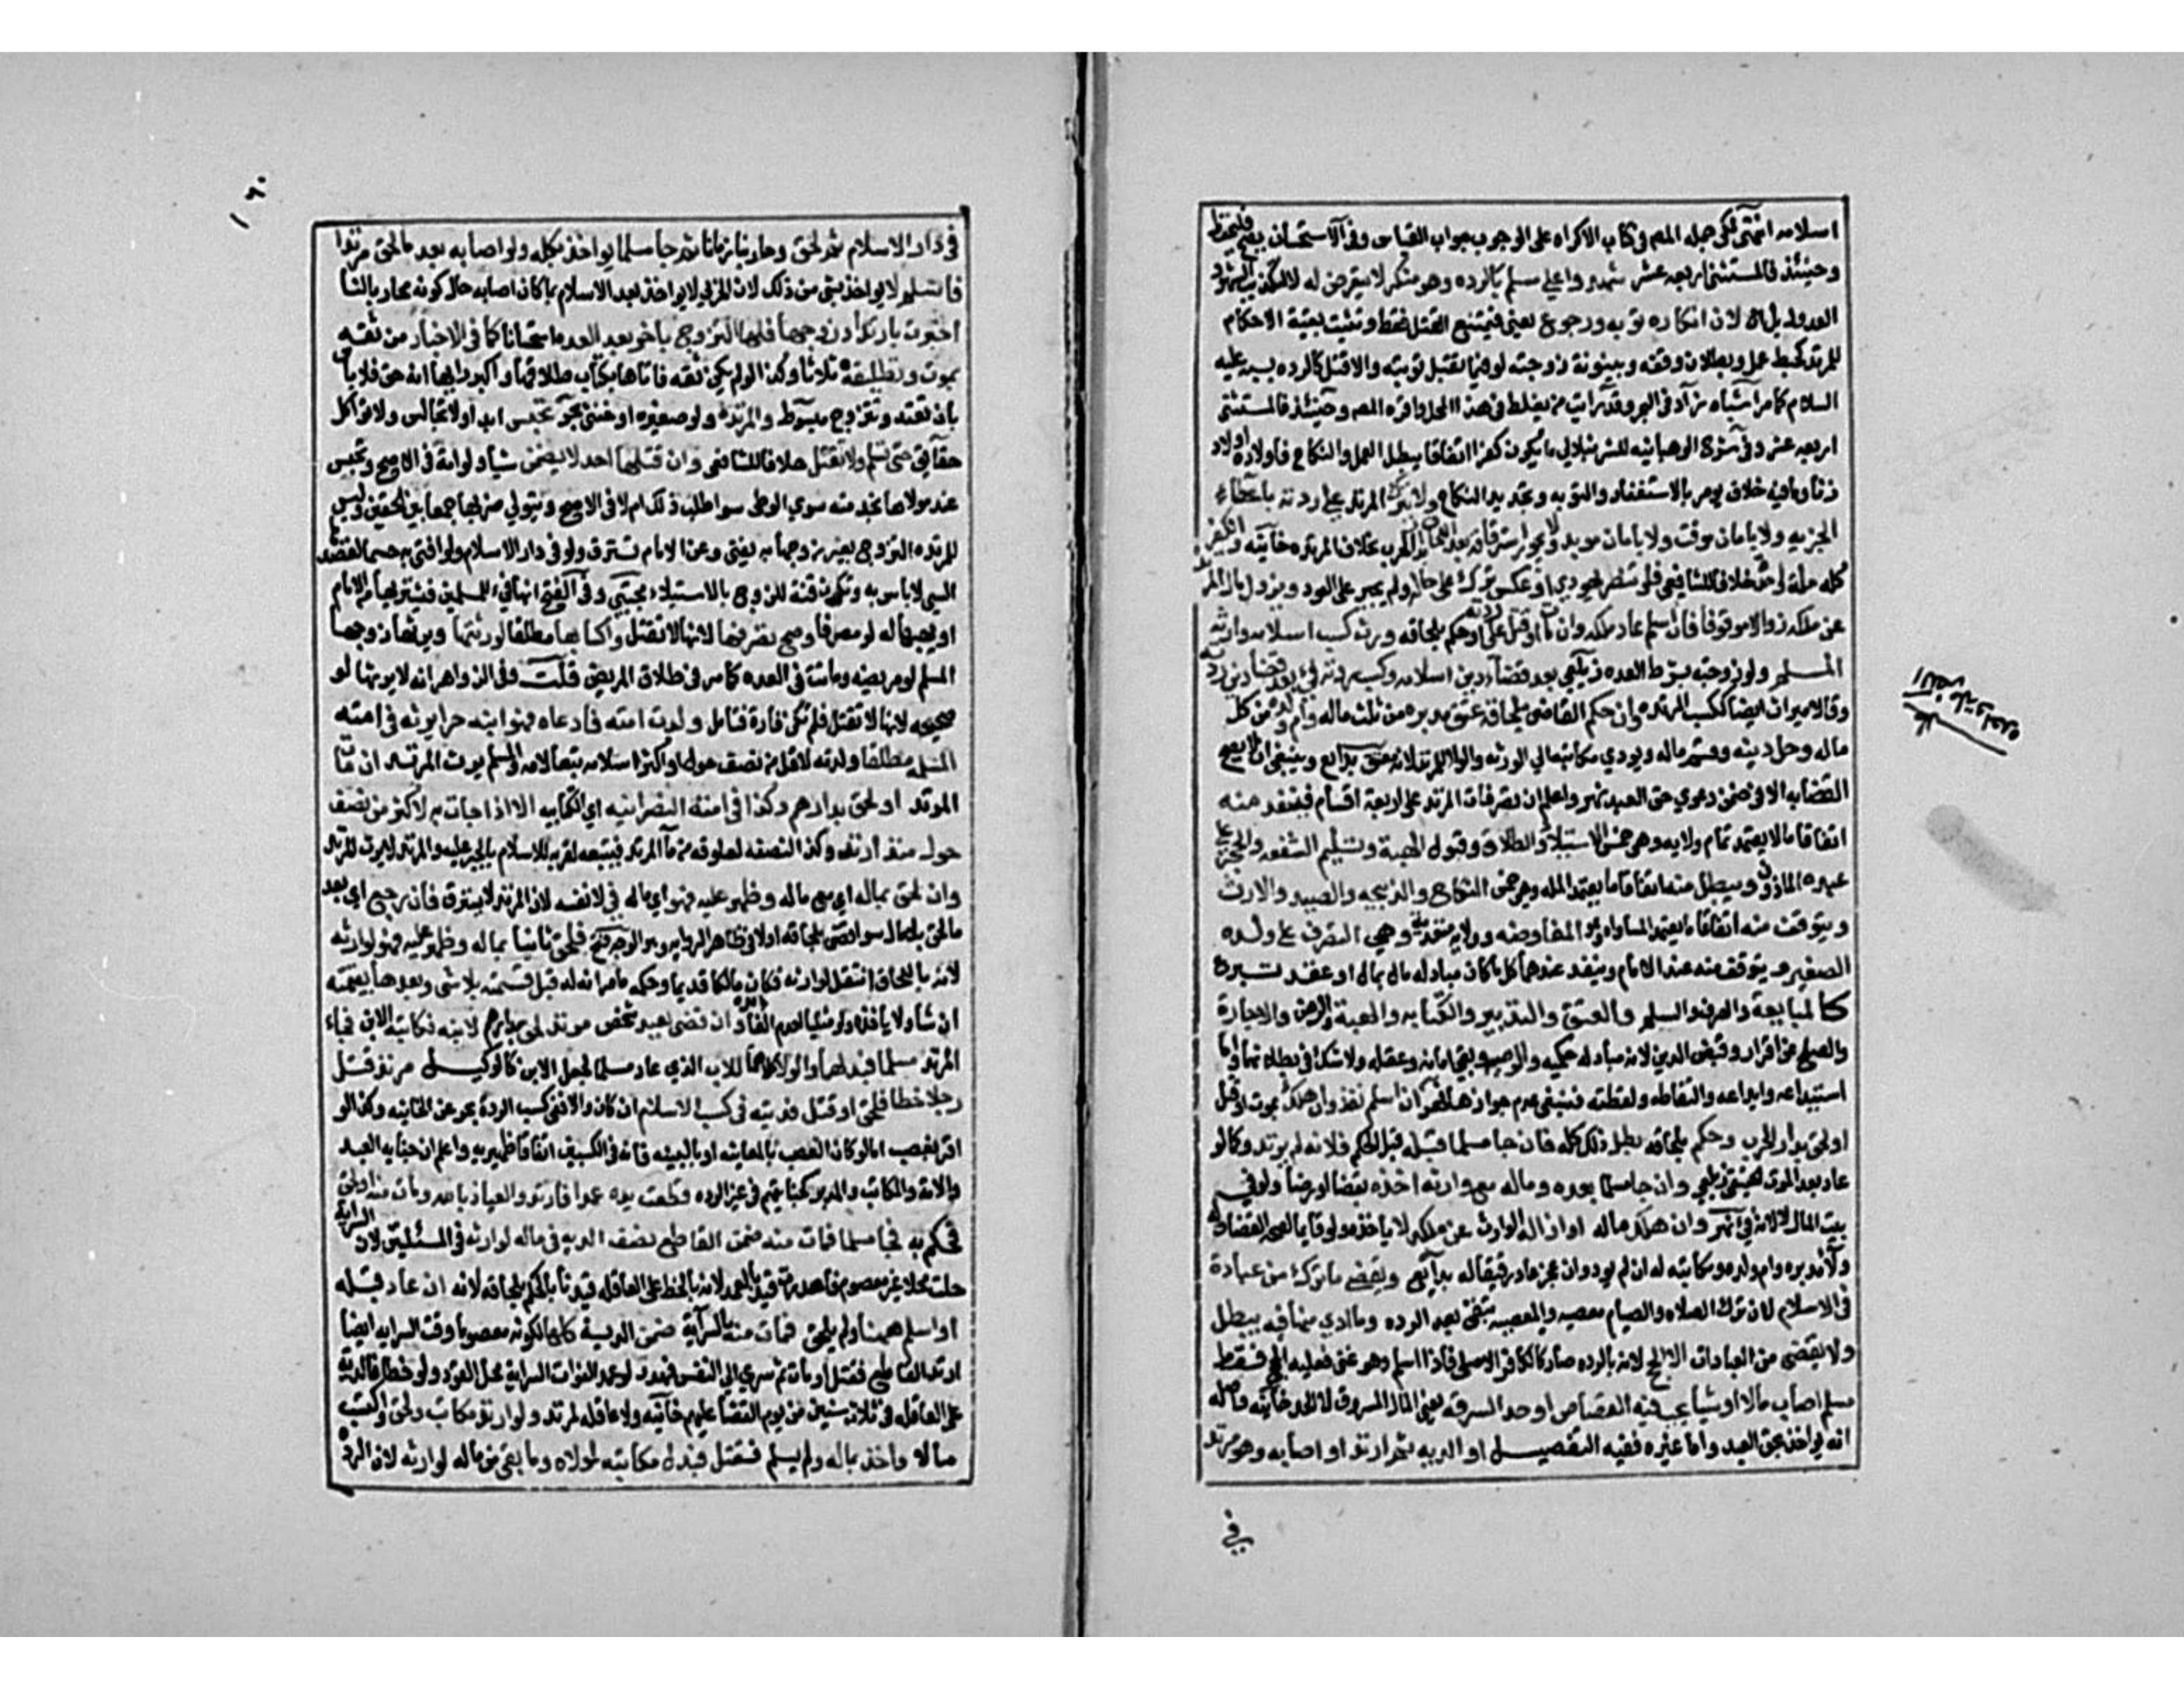 اسلامه انتهى لكن جعله المص في كتاب الاكراه على الوجوب جواب القياس وفي الاستحسان يقبح فليحفظ
وحينئذ فالمستثنى اربعة عشر شهدوا على مسلم بالردة وهو منكر لا يتعرض له لا لتكذيب الشهود
العدول بل لان انكاره توبة ورجوع يعني فيمتنع القتل فقط وتثبت بقية الاحكام
للمرتد كحبط عمل وبطلان وقف وبينونة زوجته لو فيما تقبل توبته والا قتل كالردة بسبه عليه
السلام كما مر اشباه زاد في البحر وقد رايت من يغلط في هذا المحل واقره المص وحينئذ فالمستثنى
اربعة عشر وفي شرح الوهبانيه للشرنبلالي ما يكون كفرا اتفاقا يبطل العمل والنكاح فاولاده اولاد
زنا وما فيه خلاف يومر بالاستغفار والتوبة وتجديد النكاح ولا يترك المرتد على ردته باعطاء
الجزيه ولا بامان موقت ولا بامان موبد ولا يجوز استرقاقه بعد اللحاق بدار الحرب بخلاف المرتده خانيه والكفر
كله ملة واحدة خلافا للشافعي فلو تنصر يهودي او عكس ترك على حاله ولم يجبر على العود ويزول ملك المرتد
عن ملكه زوالا موقوفا فان اسلم عاد ملكه وان مات او قتل على ردته او حكم بلحاقه ورث كسب اسلامه وارثه
المسلم ولو زوجته بشرط العده زيلعي بعد قضاء دين اسلامه وكسب ردته فيء بعد قضاء دين ردته
وقالا ميراث ايضا ككسب المرتده وان حكم القاضي بلحاقه عتق مدبره من ثلث ماله وام ولده من كل
ماله وحل دينه وقسم ماله ويودي مكاتبه مالى الورثه والولا للمرتد لانه معتق بدائع وينبغي ان لا يصح
القضا به الا في ضمن دعوي حق العبد نهر واعلم ان تصرفات المرتد على اربعة اقسام فينفذ منه
اتفاقا ما لا يعتمد تمام ولايه وهي خمس الاستيلاد والطلاق وقبول الهبة وتسليم الشفعه والحجر على
عبده الماذون ويبطل منه اتفاقا ما يعتمد المله وهي خمس النكاح والذبيحه والصيد والارث
ويتوقف منه اتفاقا ما يعتمد المساواه وهو المفاوضه وولايه متعديه وهي التصرف على ولده
الصغير ويتوقف منه عند الامام وينفذ عندهما كل ما كان مبادله مال بمال او عقد تبرع
كالمبايعة والصرف والسلم والعتق والتدبير والكتابه والهبة والرهن والاجارة
والصلح عن اقرار وقبض الدين لانه مبادله حكميه والوصيه وبقي امانه وعقله ولا شك في بطلانهما واما
استيداعه وايداعه والتقاطه ولقطته فينبغي عدم جوازها نهر ان اسلم نفذ وان هلك بموت او قتل
او لحق بدار الحرب وحكم بلحاقه بطل ذلك كله فان جا مسلما قبله قبل الحكم فكانه لم يرتد وكما لو
عاد بعد الموت الحقيقي زيلعي وان جا مسلما بعده وماله مع وارثه اخذه بقضا او رضا ولو في
بيت المال لا لانه فيء نهر وان هلك ماله او ازاله الوارث عن ملكه لا ياخذه ولو قايما لصحة القضا وله
ولا مدبره وام ولده ومكاتبه له ان لم يود وان عجز عاد رقيقا له بدائع ويقضي ما ترك من عبادة
في الاسلام لان ترك الصلاه والصيام معصيه والمعصيه تبقى بعد الردة وما ادي منها فيه يبطل
ولا يقضى من العبادات الا الحج لانه بالرده صار كالكافر الاصلي فاذا اسلم وهو غني فعليه الحج فقط
مسلم اصاب مالا او شيا يجب فيه القصاص او حد السرقه يعني المال المسروق لا الحد خانيه واصله
انه يواخذ بحق العبد واما غيره ففيه التفصيل او الديه ثم ارتد او اصابه وهو مرتد
في
على
١٦٠
في دار الاسلام ثم لحق وحاربنا زمانا ثم جا مسلما يواخذ بكله ولو اصابه بعد ما لحق مرتدا
فاسلم لا يواخذ بشي من ذلك لان الحربي لا يواخذ بعد الاسلام بما كان اصابه حال كونه محاربا لنا
اخبرت بارتداد زوجها فلها التزوج باخر بعد العده استحسانا كما في الاخبار من ثقه
بموت وتطليقه ثلاثا وكذا لو لم يكن ثقه فاتاها بكتاب طلاقها واكبر رايها انه حق فلا باس
بان تعتد وتتزوج مبسوط والمرتدة ولو صغيره او خنثى بحر تحبس ابدا ولا تجالس ولا تواكل
حقائق حتى تسلم ولا تقتل خلافا للشافعي وان قتلها احد لا يضمن شيا ولو امة في الاصح وتحبس
عند مولاها لخدمته سوي الوطى سوا طلب ذلك ام لا في الاصح ويتولي ضربها جمعا بين الحقين وليس
للمرتده التزوج بغير زوجها به يفتى وعن الامام تسترق ولو في دار الاسلام ولو افتى به حسما لقصدها
السيي لا باس به وتكون قنة للزوج بالاستيلاء مجتبى وفي الفتح انها فيء للمسلمين فيشتريها من الامام
او يهبها له لو مصرفا وصح تصرفها لانها لا تقتل واكسابها مطلقا لورثتها ويرثها زوجها
المسلم لو مريضه وماتت في العده كما مر في طلاق المريض قلت وفي الزواهر انه لا يرثها لو
صحيحه لانها لا تقتل فلم تكن فارة فتامل ولدت امته فادعاه فهو ابنه حرا يرثه في امته
المسلمه مطلقا ولدته لاقل من نصف حول او اكثر لاسلامه تبعا لامه والمسلم يرث المرتد ان مات
المرتد او لحق بدارهم وكذا في امته النصرانيه اي الكتابيه الا اذا جاءت به لاكثر من نصف
حول منذ ارتد وكذا لنصفه لعلوقه من ماء المرتد فيتبعه لقربه للاسلام بالجبر عليه والمرتد لا يرث المرتد
وان لحق بماله اي مع ماله وظهر عليه فهو اي ماله فيء لا نفسه لان المرتد لا يسترق فان رجع اي بعد
ما لحق بلا مال سوا قضى بلحاقه اولا في ظاهر الروايه وهو الوجه فتح فلحق ثانيا بماله وظهر عليه فهو لوارثه
لانه باللحاق انتقل لوارثه فكان مالكا قديما وحكمه ما مر انه له قبل قسمته بلا شي وبعدها بقيمته
ان شا ولا ياخذه لو مثليا لعدم الفائدة وان قضى بعبد شخص مرتد لحق بدارهم لابنه فكاتبه الابن فجاء
المرتد مسلما فبدلها والولا كلاهما للاب الذي عاد مسلما لجعل الابن كالوكيل مرتد قتل
رجلا خطا فلحق او قتل فديته في كسب الاسلام ان كان والا ففي كسب الردة بحر عن الخانيه وكذا لو
اقر بغصب اما لو كان الغصب بالمعاينه او بالبينه فانه في الكسبين اتفاقا ظهيريه واعلم ان جنايه العبد
والامة والمكاتب والمدبر كجنايتهم في غير الرده قطعت يده عمدا فارتد والعياذ بالله ومات منه او لحق
فحكم به فجا مسلما فمات منه ضمن القاطع نصف الديه في ماله لوارثه في المسئلتين لان السرايه
حلت محلا غير معصوم فاهدرت قيد بالعمد لانه بالخطا على العاقله قيدنا بالحكم بلحاقه لانه ان عاد قبله
او اسلم ههنا ولم يلحق فمات منه بالسرايه ضمن الدية كلها لكونه معصوما وقت السرايه ايضا
ارتد القاطع فقتل او مات ثم سري الى النفس فهدر لو عمدا لفوات محل القود ولو خطا فالديه
على العاقله في ثلاث سنين من يوم القضا عليهم خانيه ولا عاقله لمرتد ولو ارتد مكاتب ولحق واكتسب
مالا واخذ بماله ولم يسلم فقتل فبدل مكاتبته لمولاه وما بقي من ماله لوارثه لان الردة